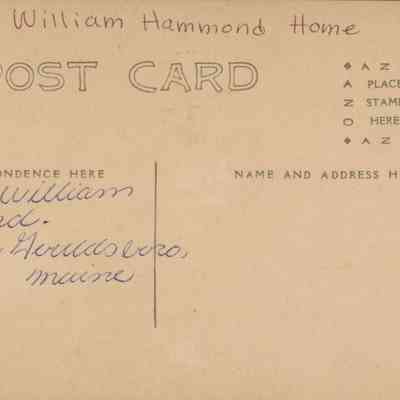 William Hammond Home
POST CARD
AZ
A PLACE
Z STAMP
O HERE
AZ
NDENCE HERE
NAME AND ADDRESS H
William
d.
Gouldsboro,
maine